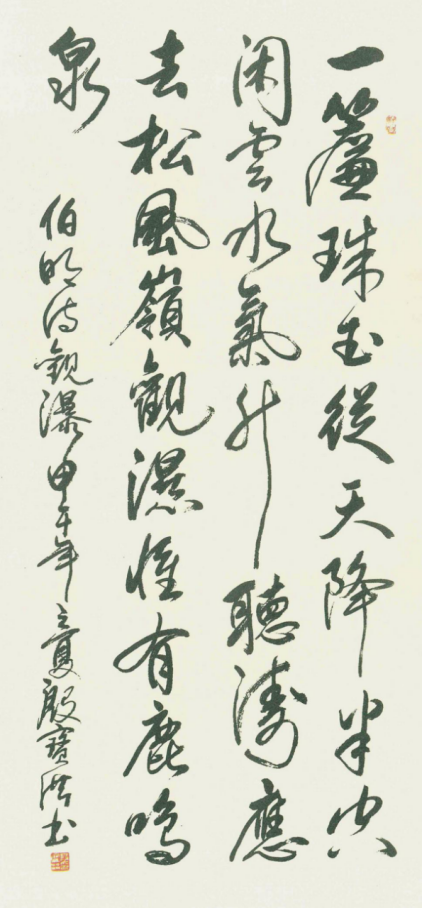 一簾珠玉從天降半空
闲雲水氣升聽濤應
去松風嶺觀瀑惟有鹿鳴
泉
伯明詩觀瀑甲午年立夏殷寶洪书